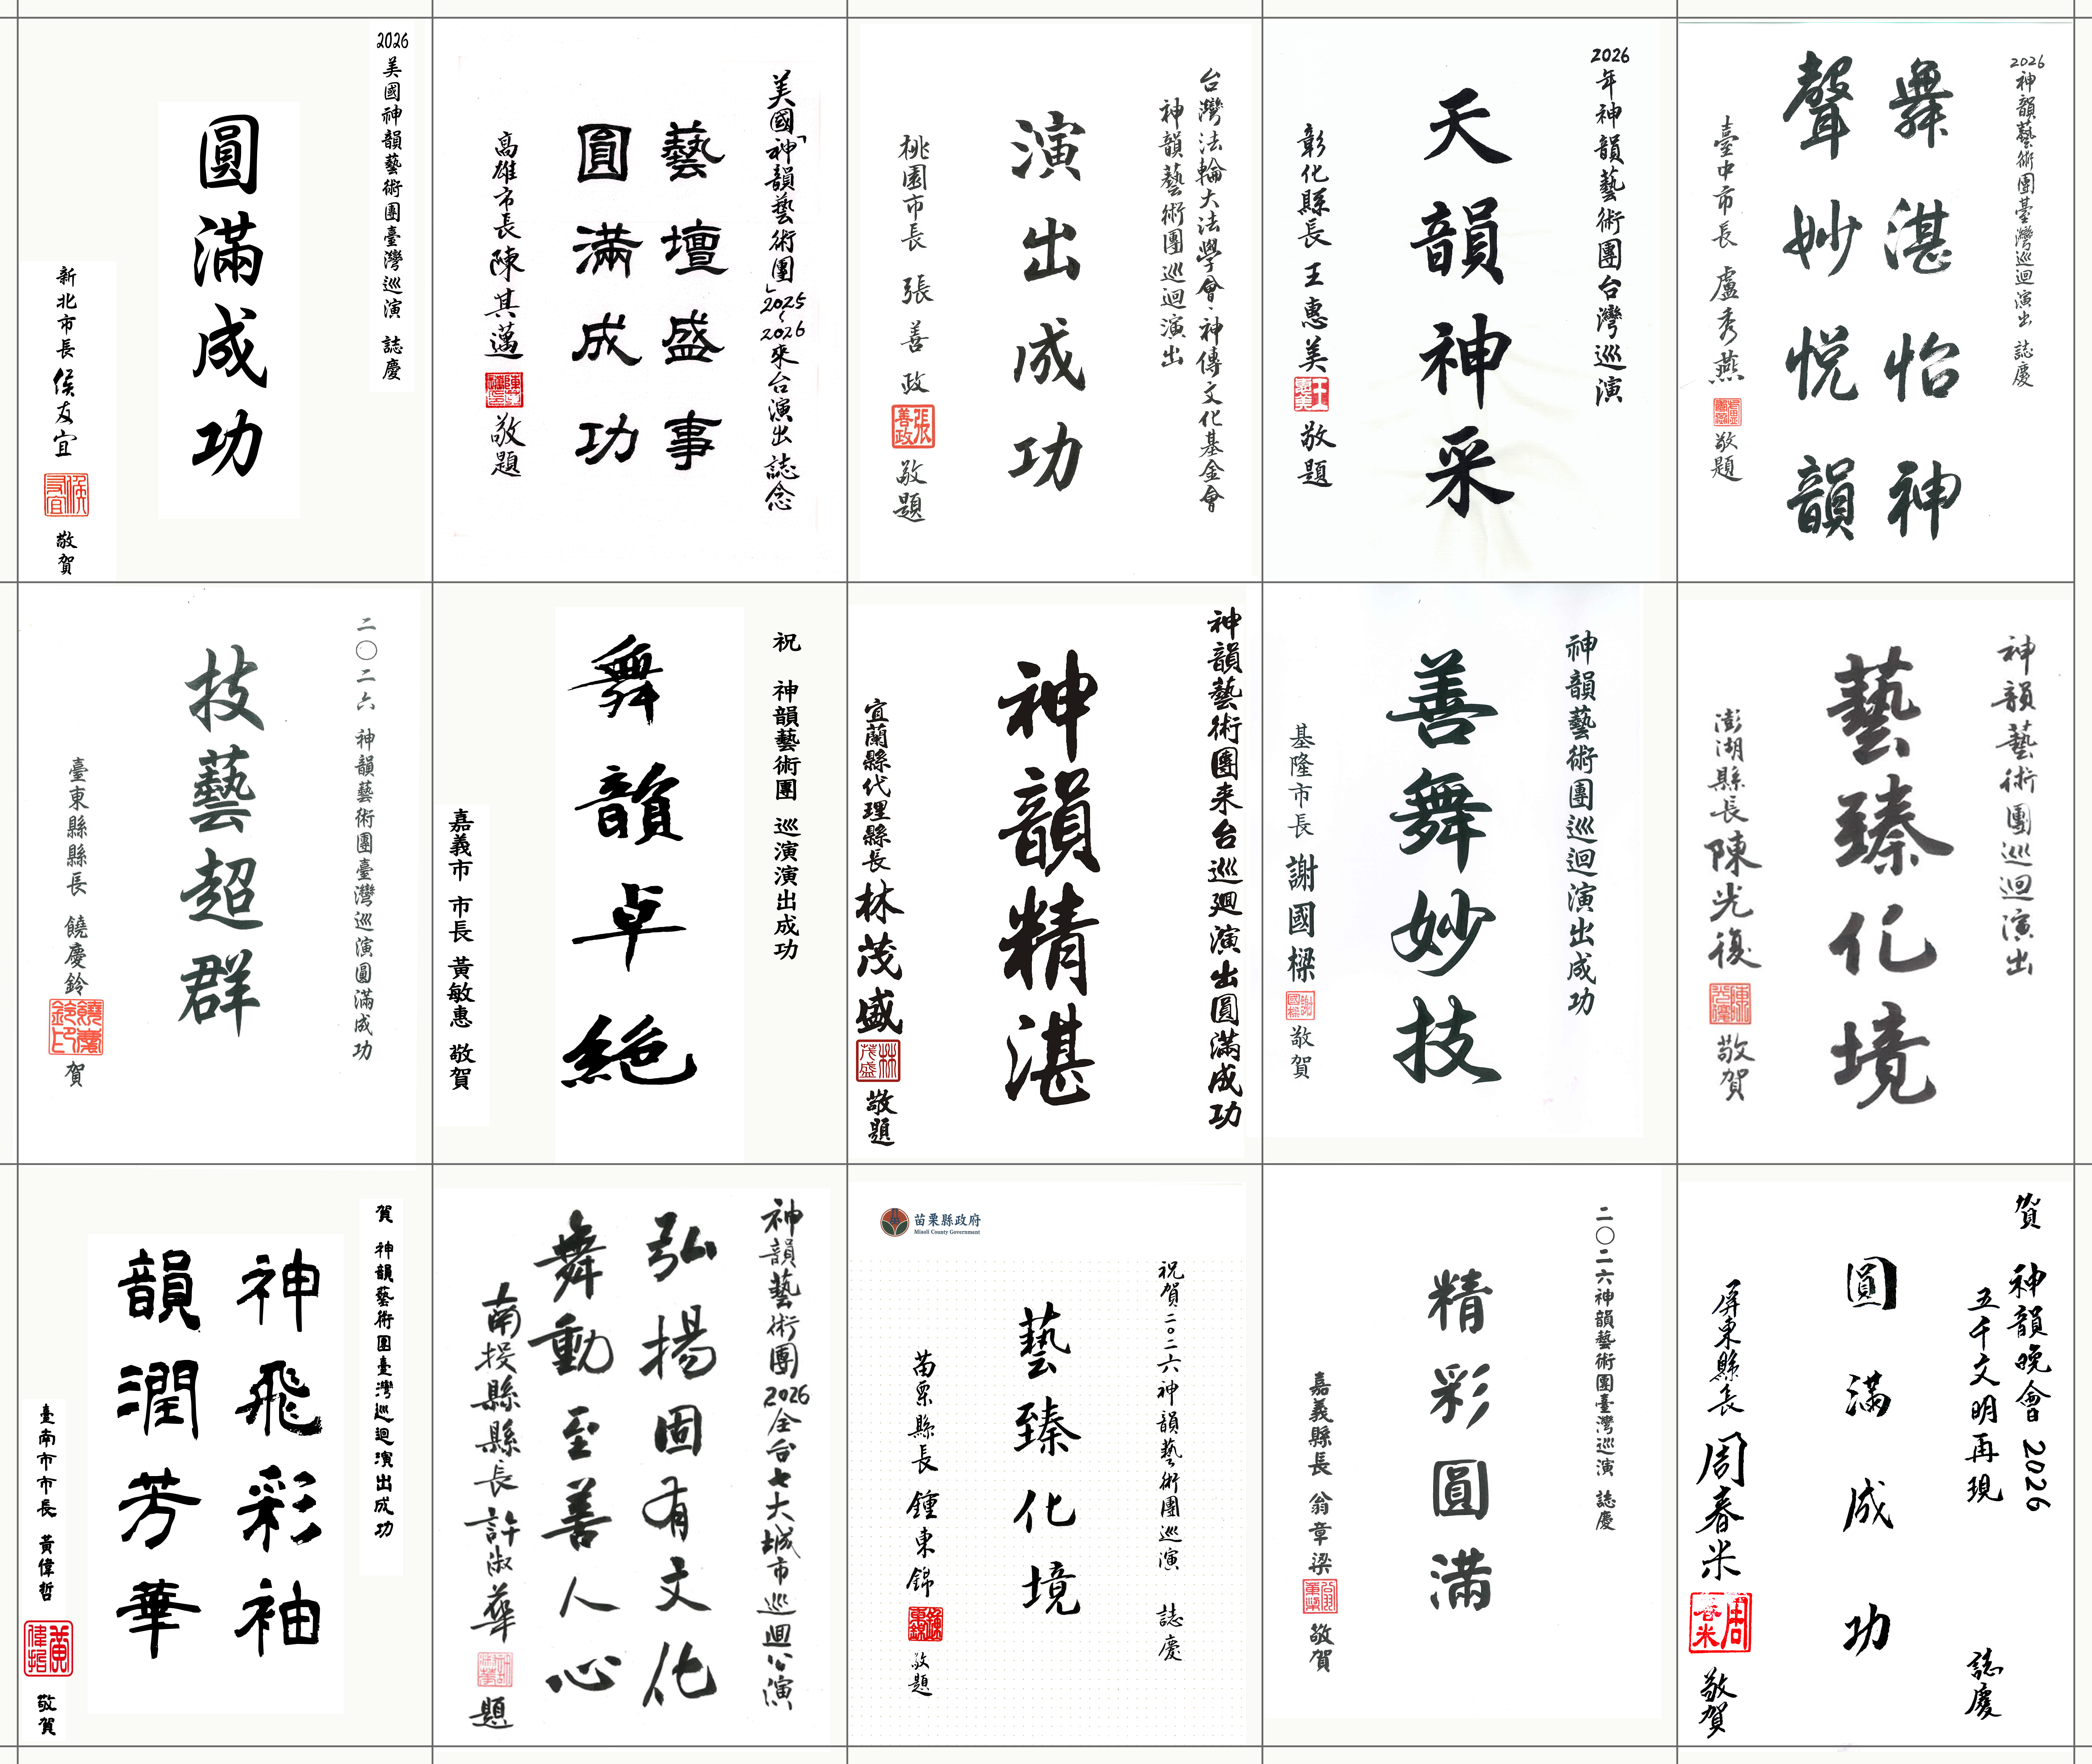 2026美國神韻藝術團臺灣巡演 誌慶
圓滿成功
新北市長 侯友宜
侯友宜
敬賀
美國「神韻藝術團」2025~2026來台演出 誌念
藝壇盛事
圓滿成功
高雄市長 陳其邁
敬題
台灣法輪大法學會、神傳文化基金會
神韻藝術團巡迴演出
演出成功
桃園市長 張善政
張善政
敬題
2026年神韻藝術團台灣巡演
天韻神采
彰化縣長 王惠美
王惠美
敬題
2026神韻藝術團臺灣巡迴演出 誌慶
舞湛怡神
聲妙悅韻
臺中市長 盧秀燕
敬題
二〇二六 神韻藝術團臺灣巡演圓滿成功
技藝超群
臺東縣縣長 饒慶鈴
饒慶鈴印
賀
祝 神韻藝術團 巡演演出成功
舞韻卓絕
嘉義市 市長 黃敏惠 敬賀
神韻藝術團来台巡迴演出圓滿成功
神韻精湛
宜蘭縣代理縣長 林茂盛
林茂盛
敬題
神韻藝術團巡迴演出成功
善舞妙技
基隆市長 謝國樑
謝國樑
敬賀
神韻藝術團巡迴演出
藝臻化境
澎湖縣長陳光復
陳光復
敬賀
賀 神韻藝術團臺灣巡迴演出成功
神飛彩袖
韻潤芳華
臺南市市長 黃偉哲
黃偉哲
敬賀
神韻藝術團2026全台七大城市巡迴公演
弘揚固有文化
舞動至善人心
南投縣縣長許淑華
題
苗栗縣政府
Miaoli County Government
祝賀二〇二六神韻藝術團巡演 誌慶
藝臻化境
苗栗縣長 鍾東錦
鍾東錦
敬題
二〇二六神韻藝術團臺灣巡演 誌慶
精彩圓滿
嘉義縣長 翁章梁
翁章梁
敬賀
賀 神韻晚會 2026
五千文明再現 誌慶
圓滿成功
屏東縣長 周春米
周春米
敬賀